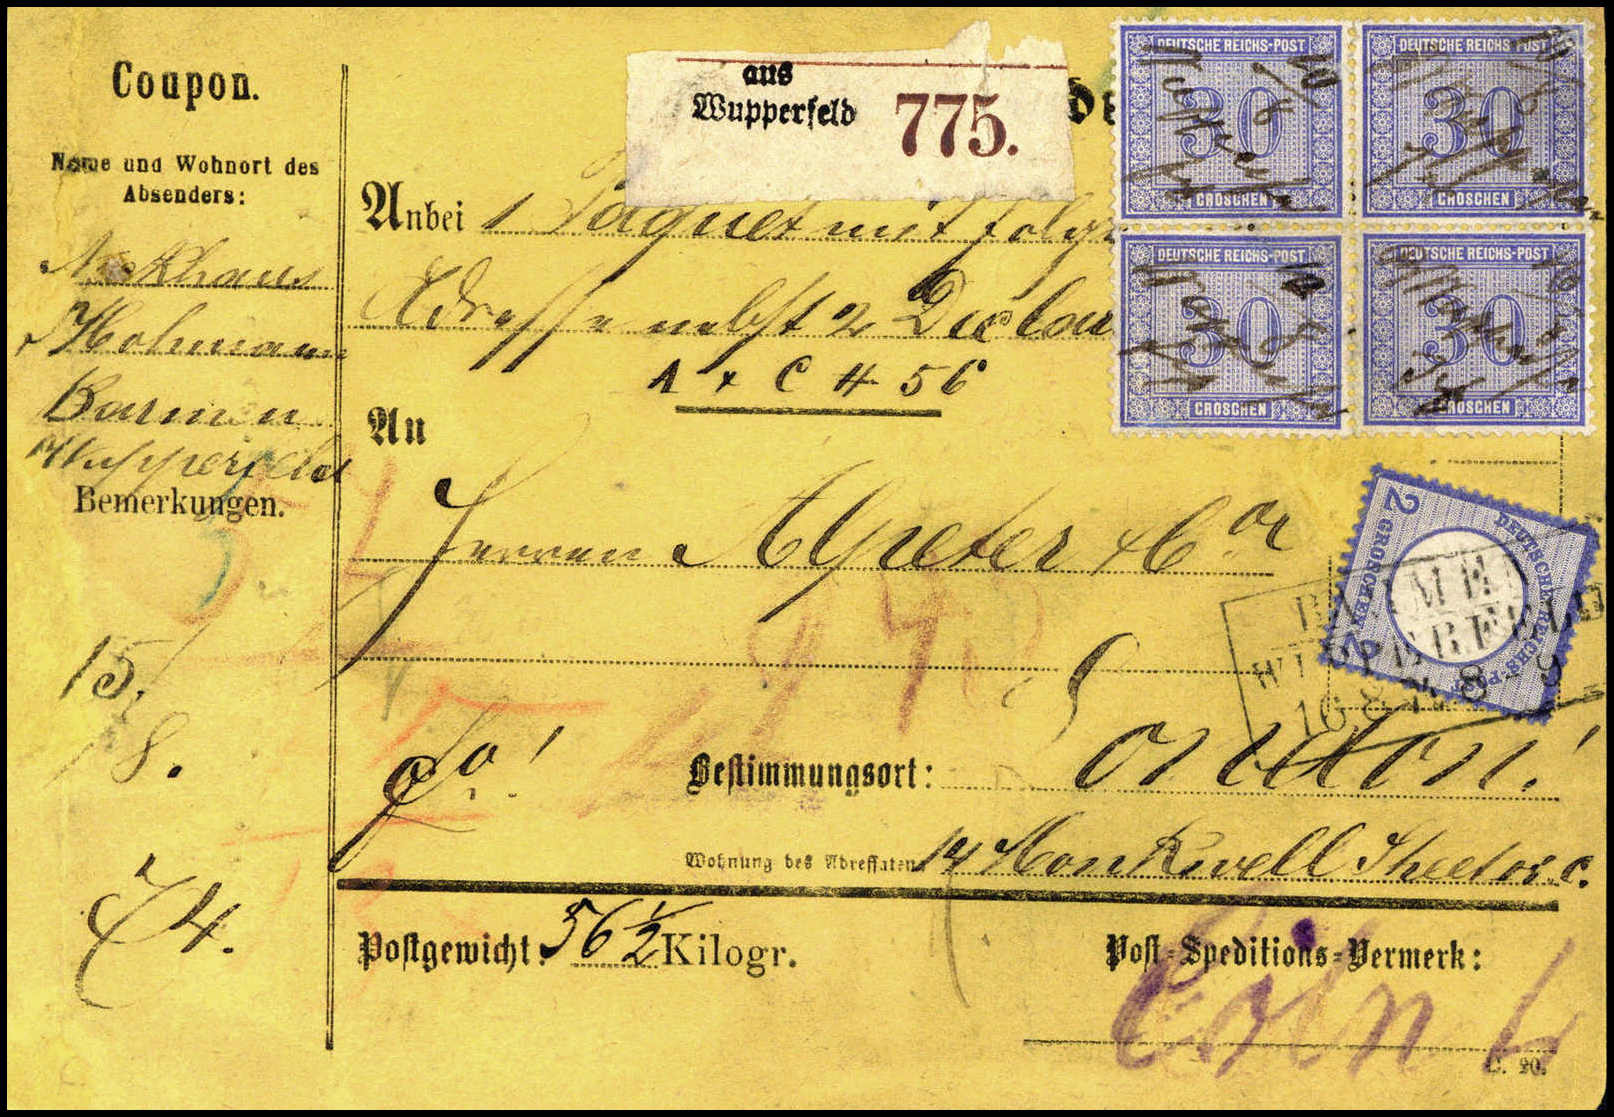 Coupon.
Name und Wohnort des
Absenders:
Barmen
Wupperfeld
Bemerkungen.
15/
8.
74.
aus
Wupperfeld 775.
Anbei 1 Paquet mit folg
Adresse nebst 2 Declar
A + C # 56
An
Herren A Speter & Co
Bestimmungsort: London!
Wohnung des Adressaten 14 Monkwell Street E. C.
Postgewicht: 56 1/2 Kilogr.
Post-Speditions-Vermerk:
Cöln
C. 20.
DEUTSCHE REICHS-POST
30
GROSCHEN
DEUTSCHE REICHS-POST
30
GROSCHEN
DEUTSCHE REICHS-POST
30
GROSCHEN
DEUTSCHE REICHS-POST
30
GROSCHEN
DEUTSCHE REICHS-POST
2 GROSCHEN 2
BARMEN
WUPPERFELD